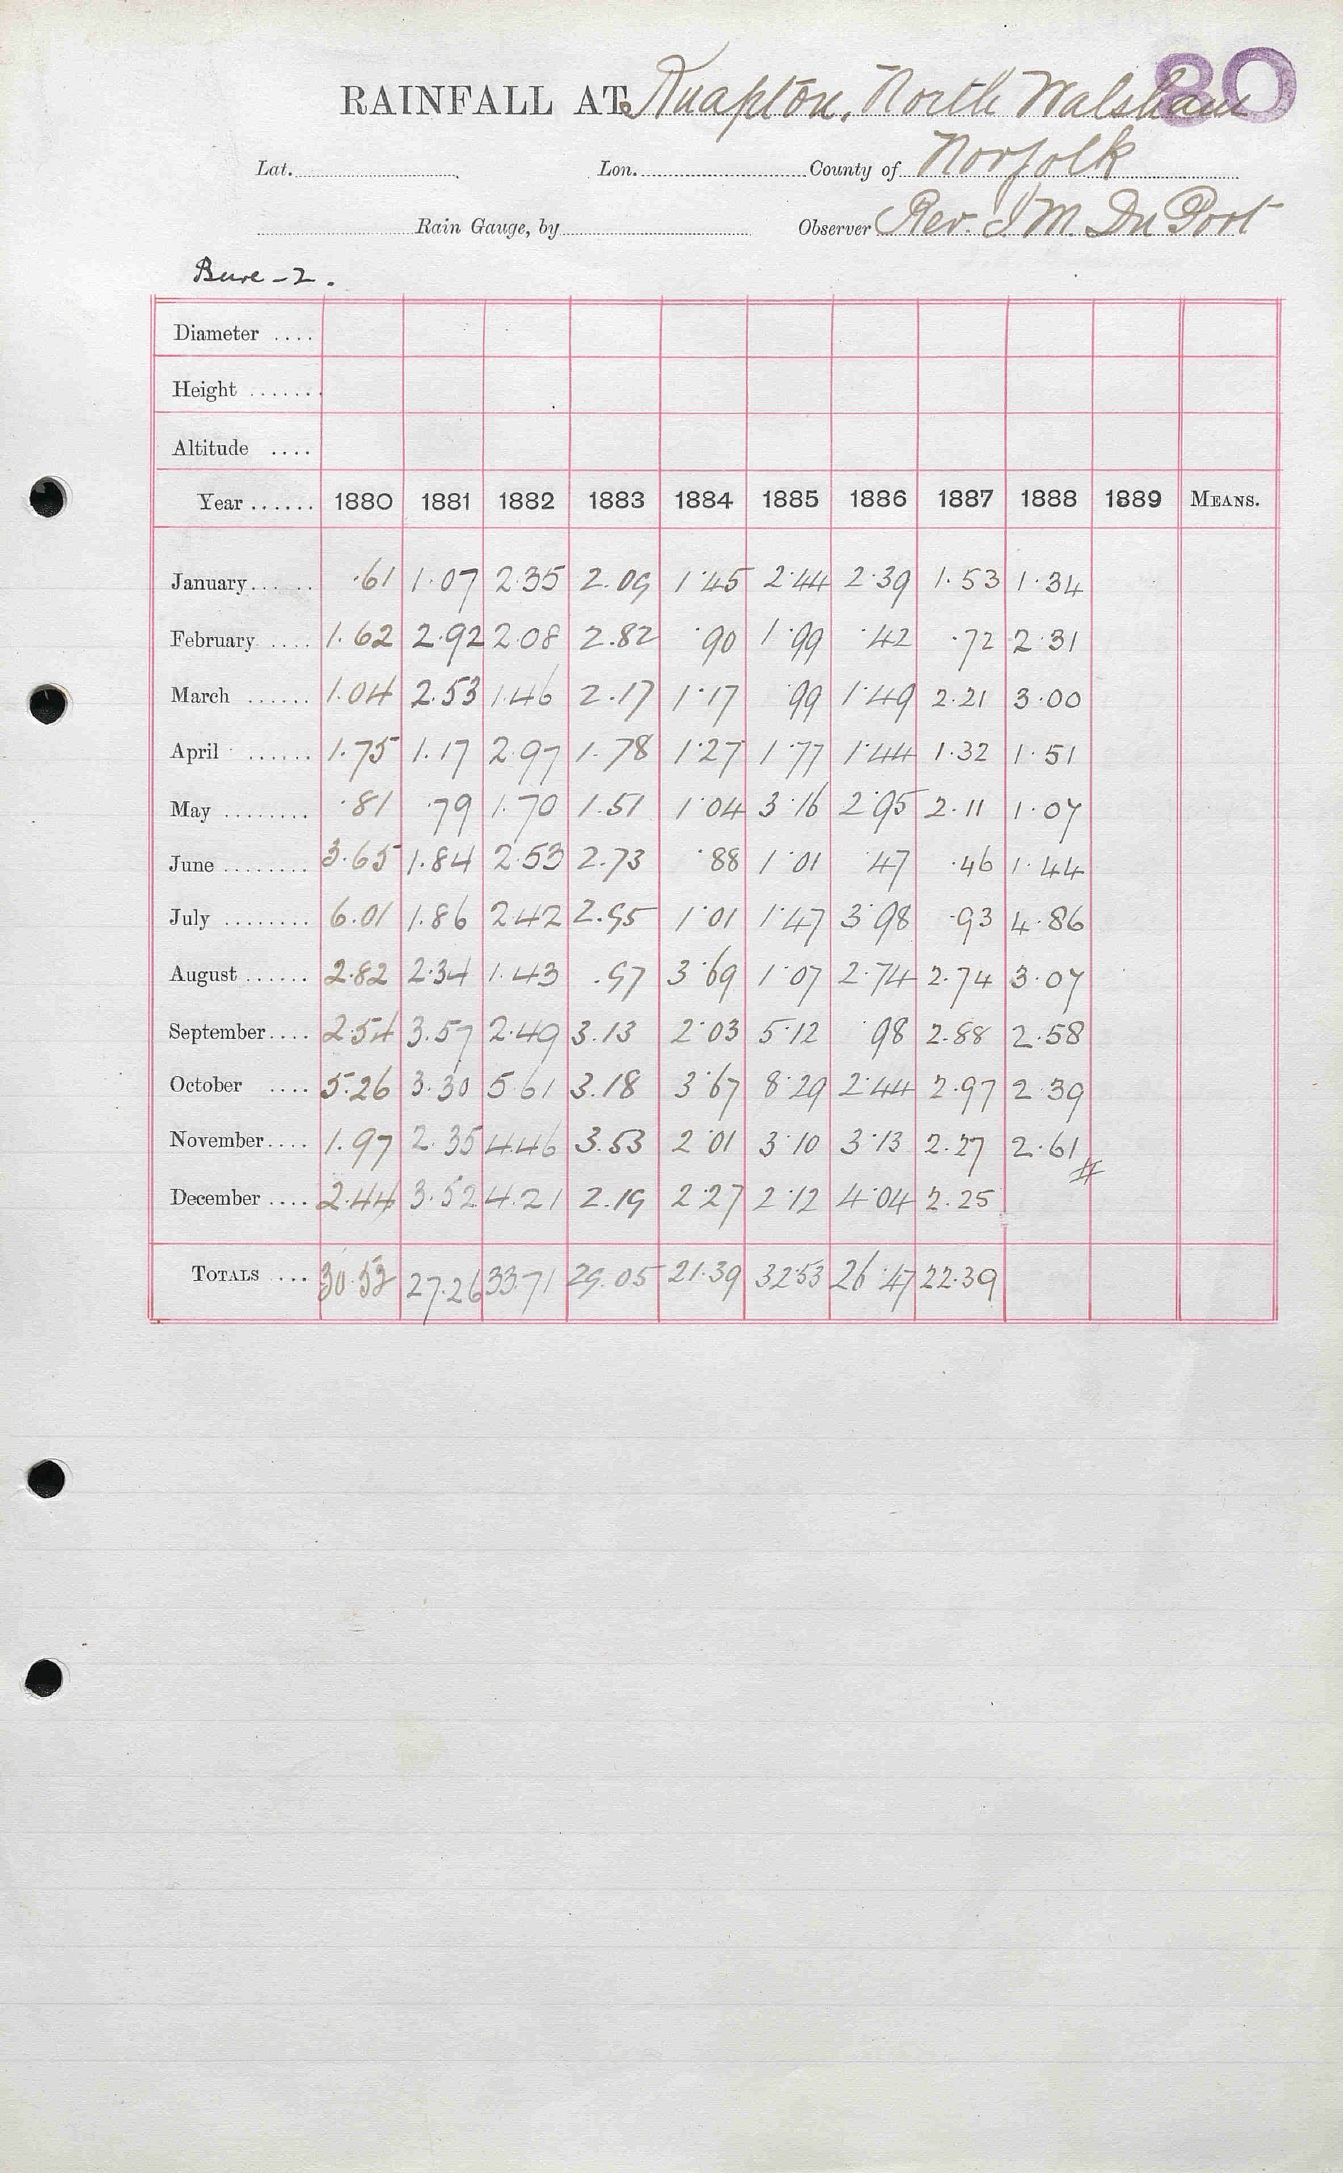 80
RAINFALL AT Knapton, North Walsham
Lat. Lon. County of Norfolk
Rain Gauge, by Observer Rev. J. M. Du Port
Bure - 2.
Diameter ....
Height .......
Altitude ....
Year ...... 1880 1881 1882 1883 1884 1885 1886 1887 1888 1889 MEANS.
January...... .61 1.07 2.35 2.09 1.45 2.44 2.39 1.53 1.34
February .... 1.62 2.92 2.08 2.82 .90 1.99 .42 .72 2.31
March ...... 1.04 2.53 1.46 2.17 1.17 .99 1.49 2.21 3.00
April ...... 1.75 1.17 2.97 1.78 1.27 1.77 1.44 1.32 1.51
May ........ .81 .79 1.70 1.51 1.04 3.16 2.95 2.11 1.07
June ........ 3.65 1.84 2.53 2.73 .88 1.01 .47 .46 1.44
July ........ 6.01 1.86 2.42 2.95 1.01 1.47 3.98 .93 4.86
August ...... 2.82 2.34 1.43 .97 3.69 1.07 2.74 2.74 3.07
September.... 2.54 3.57 2.49 3.13 2.03 5.12 .98 2.88 2.58
October .... 5.26 3.30 5.61 3.18 3.67 8.29 2.44 2.97 2.39
November.... 1.97 2.35 4.46 3.53 2.01 3.10 3.13 2.27 2.61
December .... 2.44 3.52 4.21 2.19 2.27 2.12 4.04 2.25
TOTALS .... 30.52 27.26 33.71 29.05 21.39 32.53 26.47 22.39